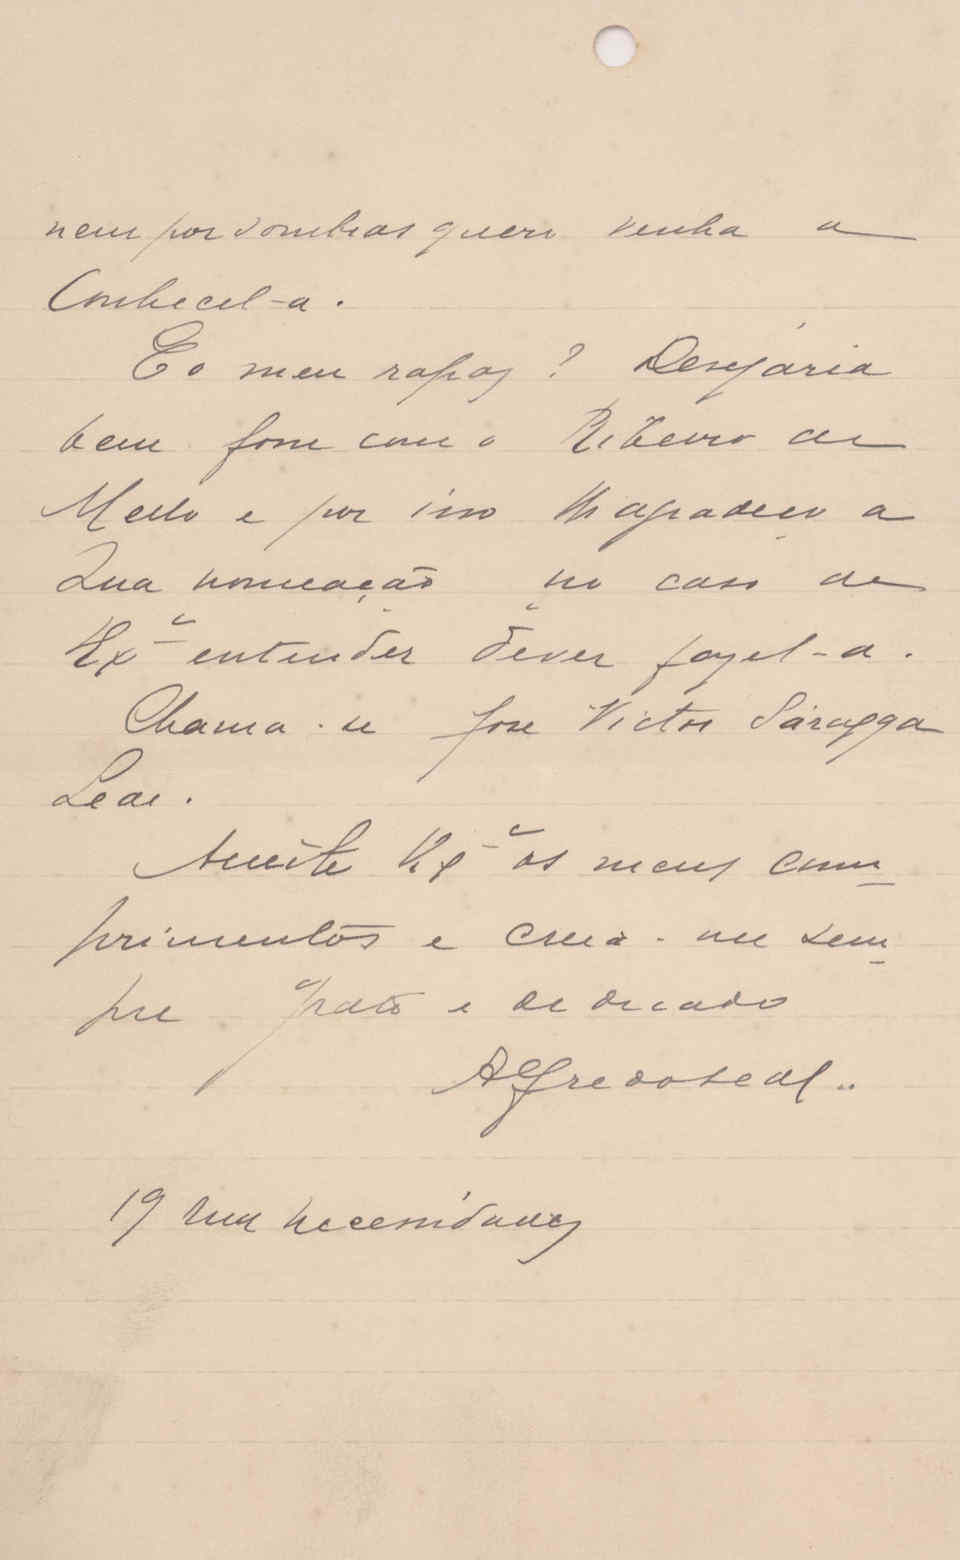 nem por sombras quero venha a
Conhecel-a.
E o meu rapaz? Desejaria
bem fosse com o Ribeiro de
Mello e por isso lh'agradeço a
Sua nomeação no caso de
V. Exª entender dever fazel-a.
Chama-se José Victor Saragga
Leal.
Acceite V. Exª os meus com
primentos e creia-me sem
pre grato e dedicado
Alfredo Leal..
19 Rua Necessidades